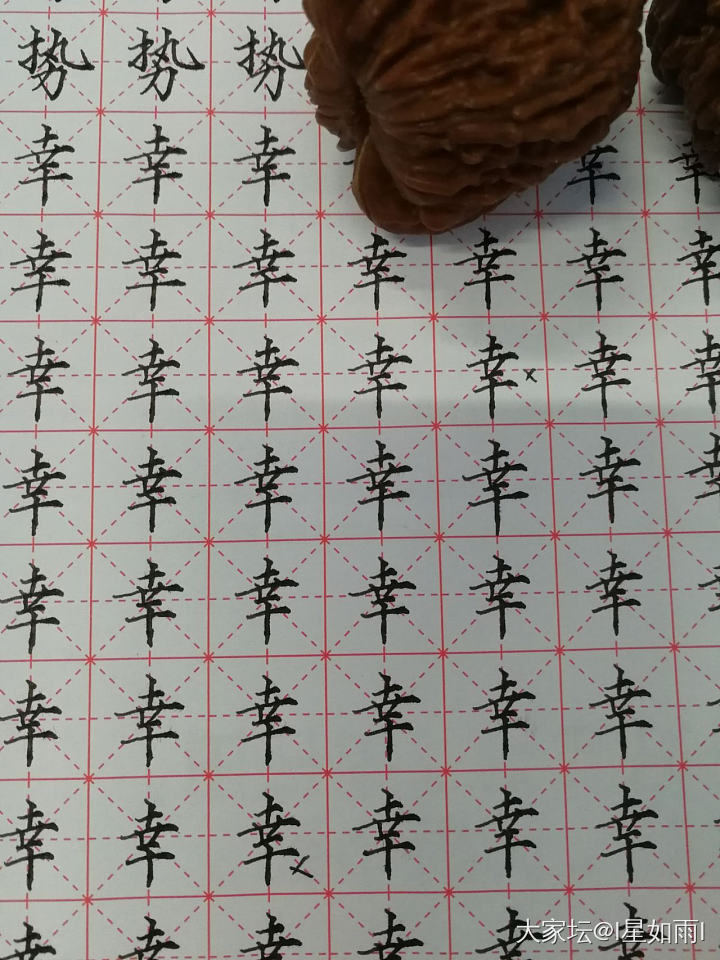 势势势
幸幸幸幸幸
幸幸幸幸幸幸幸
幸幸幸幸幸×幸幸
幸幸幸幸幸幸幸
幸幸幸幸幸幸
幸幸幸幸幸幸
幸幸幸×幸幸幸
幸幸幸幸幸幸
大家坛@l星如雨l